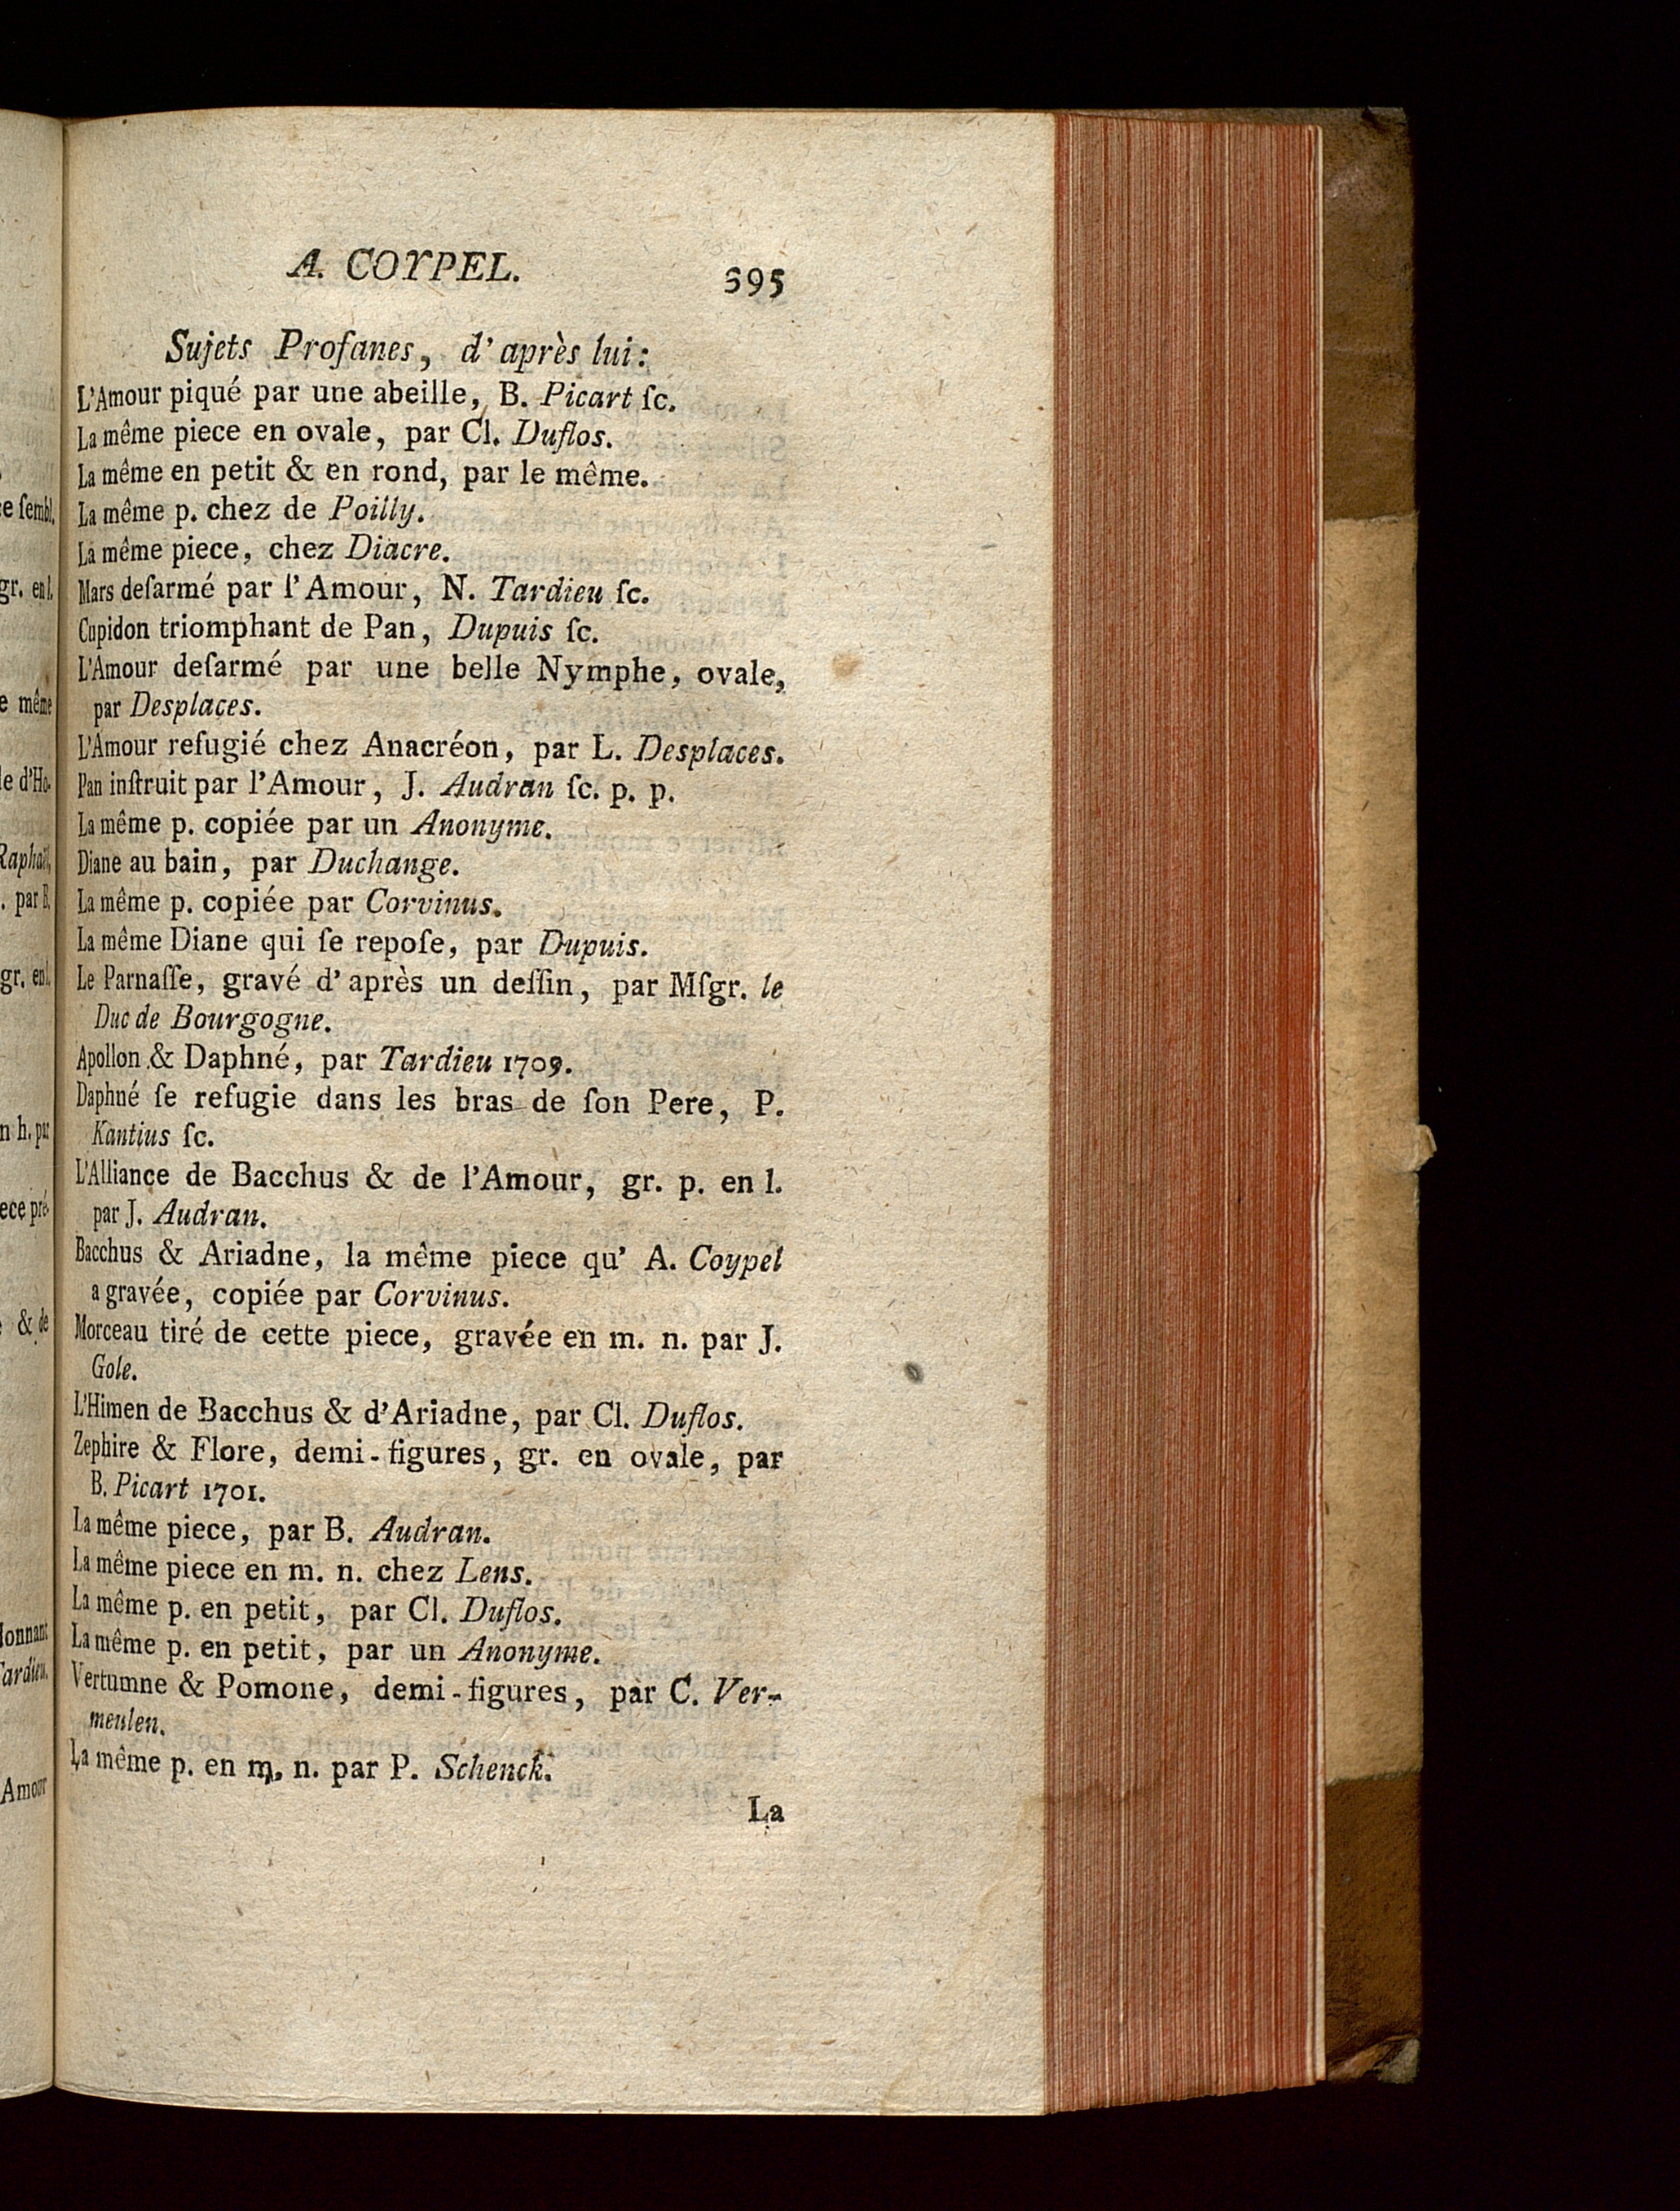 A. COYPEL. 395
Sujets Profanes, d'après lui:
L'Amour piqué par une abeille, B. Picart ſc.
La même piece en ovale, par Cl. Duflos.
La même en petit & en rond, par le même.
La même p. chez de Poilly.
La même piece, chez Diacre.
Mars deſarmé par l'Amour, N. Tardieu ſc.
Cupidon triomphant de Pan, Dupuis ſc.
L'Amour deſarmé par une belle Nymphe, ovale,
par Desplaces.
L'Amour refugié chez Anacréon, par L. Desplaces.
Pan inſtruit par l'Amour, J. Audran ſc. p. p.
La même p. copiée par un Anonyme.
Diane au bain, par Duchange.
La même p. copiée par Corvinus.
La même Diane qui ſe repoſe, par Dupuis.
Le Parnaſſe, gravé d'après un deſſin, par Mſgr. le
Duc de Bourgogne.
Apollon & Daphné, par Tardieu 1709.
Daphné ſe refugie dans les bras de ſon Pere, P.
Kantius ſc.
L'Alliance de Bacchus & de l'Amour, gr. p. en l.
par J. Audran.
Bacchus & Ariadne, la même piece qu' A. Coypel
a gravée, copiée par Corvinus.
Morceau tiré de cette piece, gravée en m. n. par J.
Gole.
L'Himen de Bacchus & d'Ariadne, par Cl. Duflos.
Zephire & Flore, demi-figures, gr. en ovale, par
B. Picart 1701.
La même piece, par B. Audran.
La même piece en m. n. chez Lens.
La même p. en petit, par Cl. Duflos.
La même p. en petit, par un Anonyme.
Vertumne & Pomone, demi-figures, par C. Ver-
meulen.
La même p. en m. n. par P. Schenck.
La